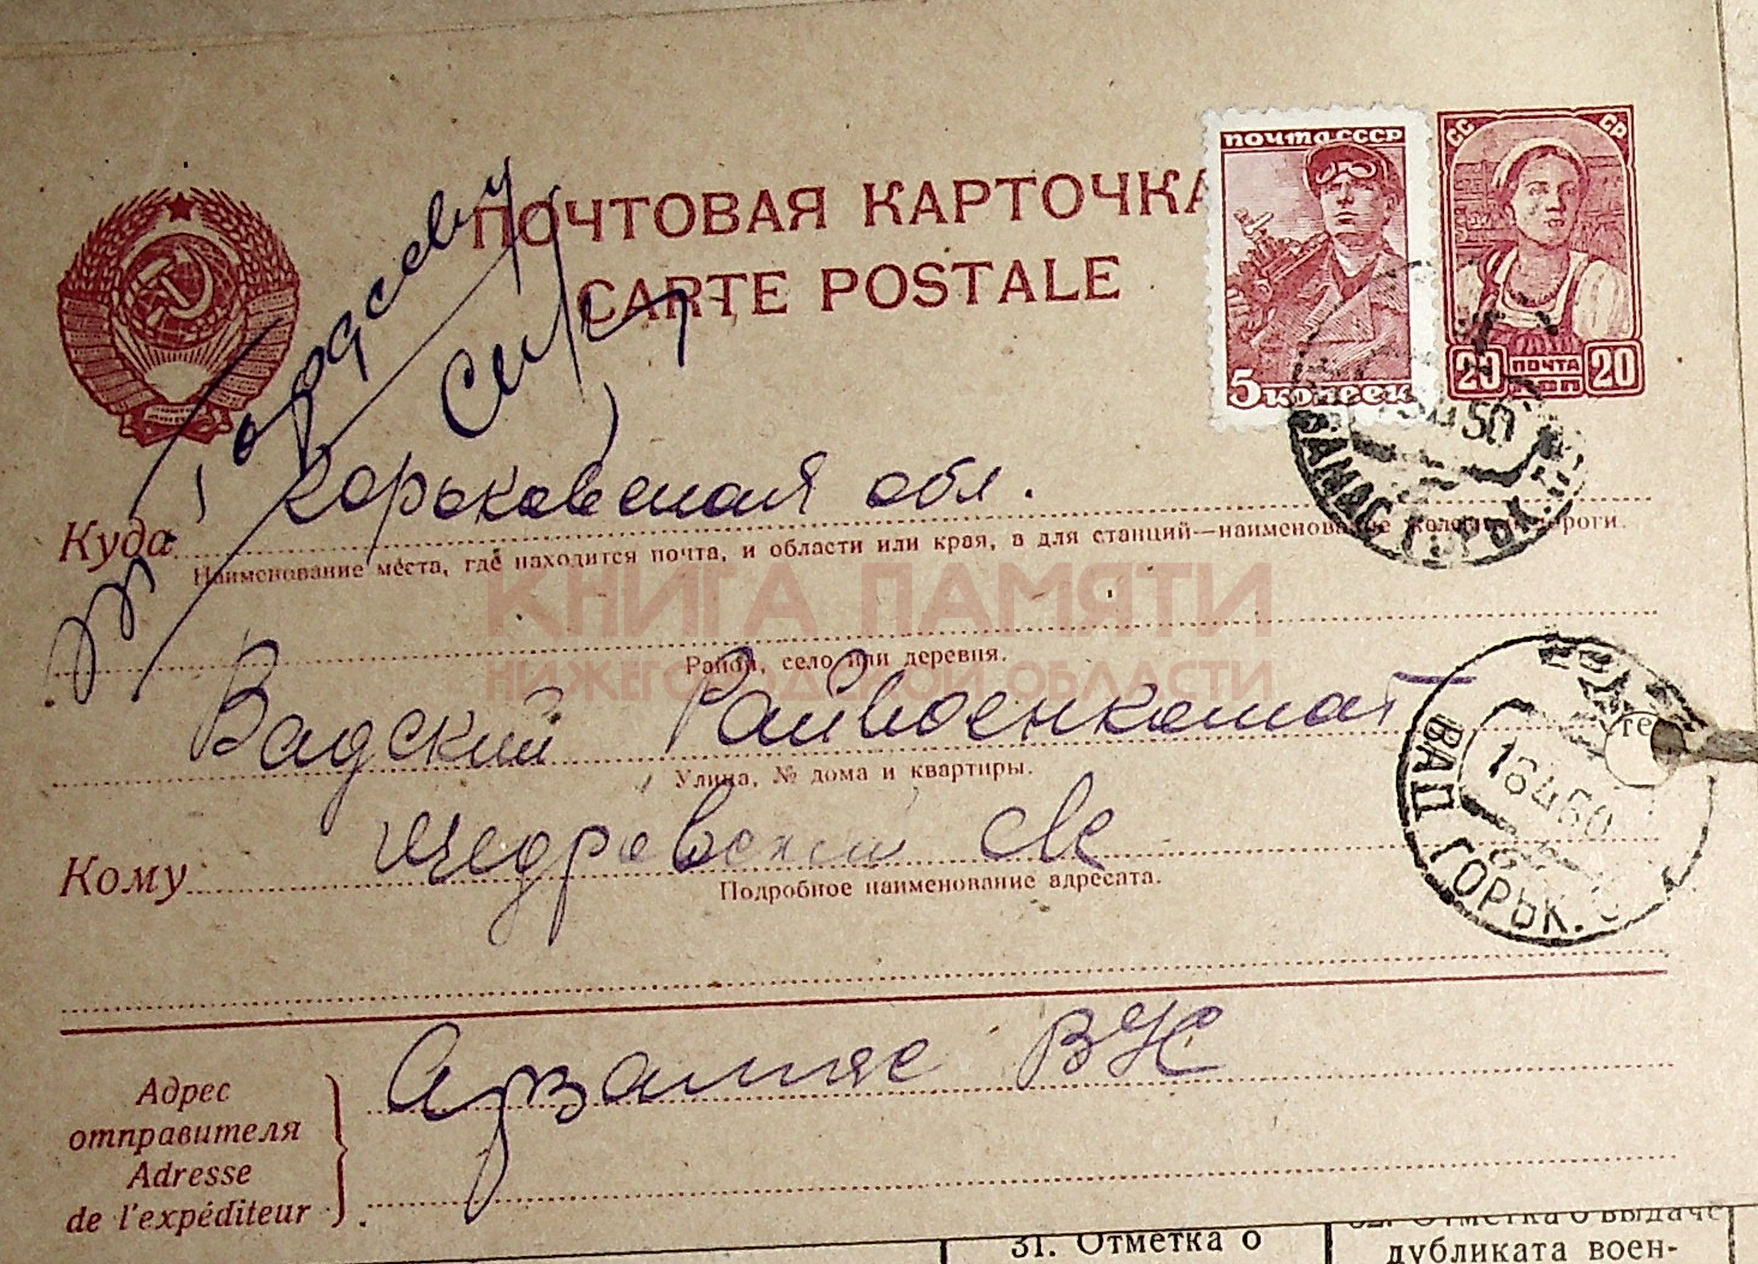 ПОЧТОВАЯ КАРТОЧКА
CARTE POSTALE
ПОЧТА СССР
5 копеек
СС СР
20 ПОЧТА КОП 20
Гордееву
Горьковская обл.
Куда
Наименование места, где находится почта, и области или края, а для станций—наименование железной дороги.
КНИГА ПАМЯТИ
НИЖЕГОРОДСКОЙ ОБЛАСТИ
Район, село или деревня.
Вадский Райвоенкомат
Улица, № дома и квартиры.
Кому
Подробное наименование адресата.
ВАД ГОРЬК.
16 4 50
Арзамас
Адрес
отправителя
Adresse
de l'expéditeur
31. Отметка о
32. Отметка о выдаче
дубликата воен-